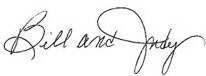 Bill and Judy